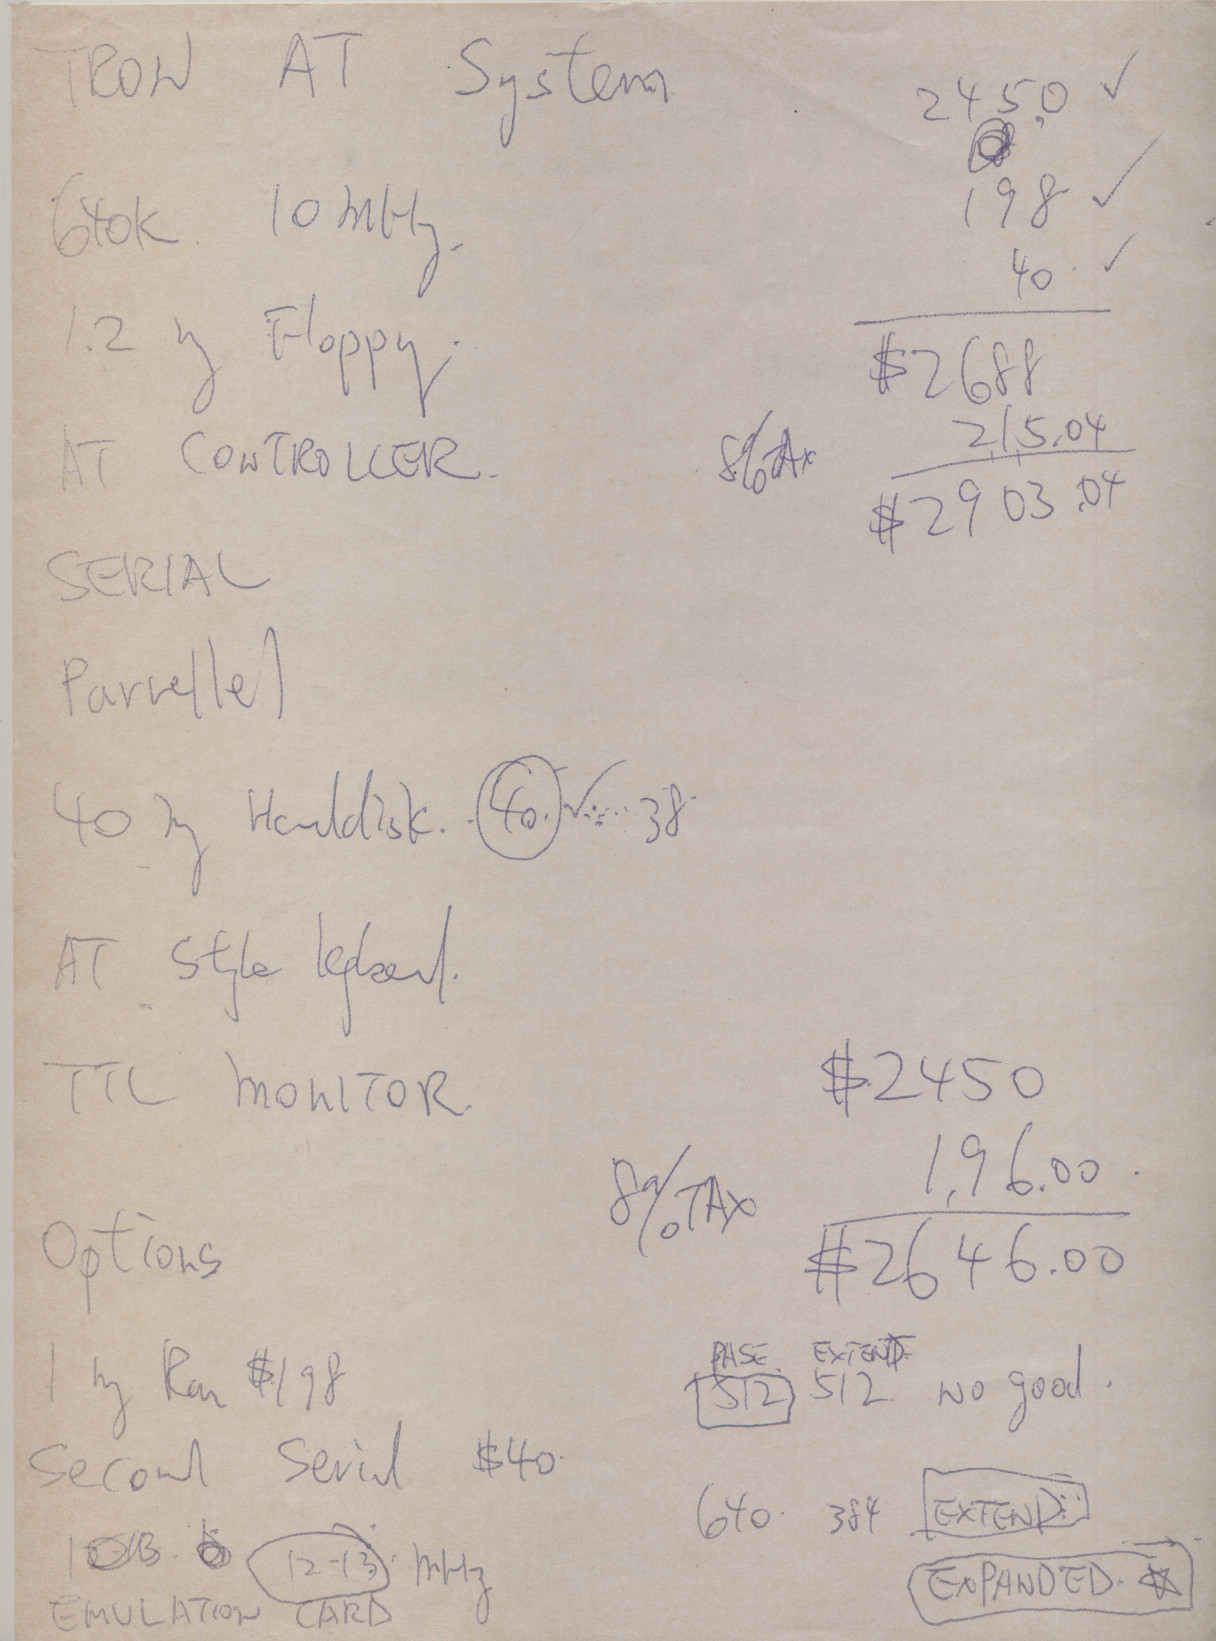 TRON AT System
2450 ✓
198 ✓
640k. 10 mHz.
40. ✓
1.2 Floppy.
$2688
8% TAx 215.04
AT CONTROLLER.
$2903.04
SERIAL
Parrellel
40 Harddisk. 40. ✓ 38
AT style keyboard.
TTL MONITOR. $2450
8% TAX 196.00
Options $2646.00
BASE EXTEND
1 Ram $198 512 512 no good.
Second Serial $40.
640. 384 EXTEND
12-13 mHz
EXPANDED.
EMULATION CARD